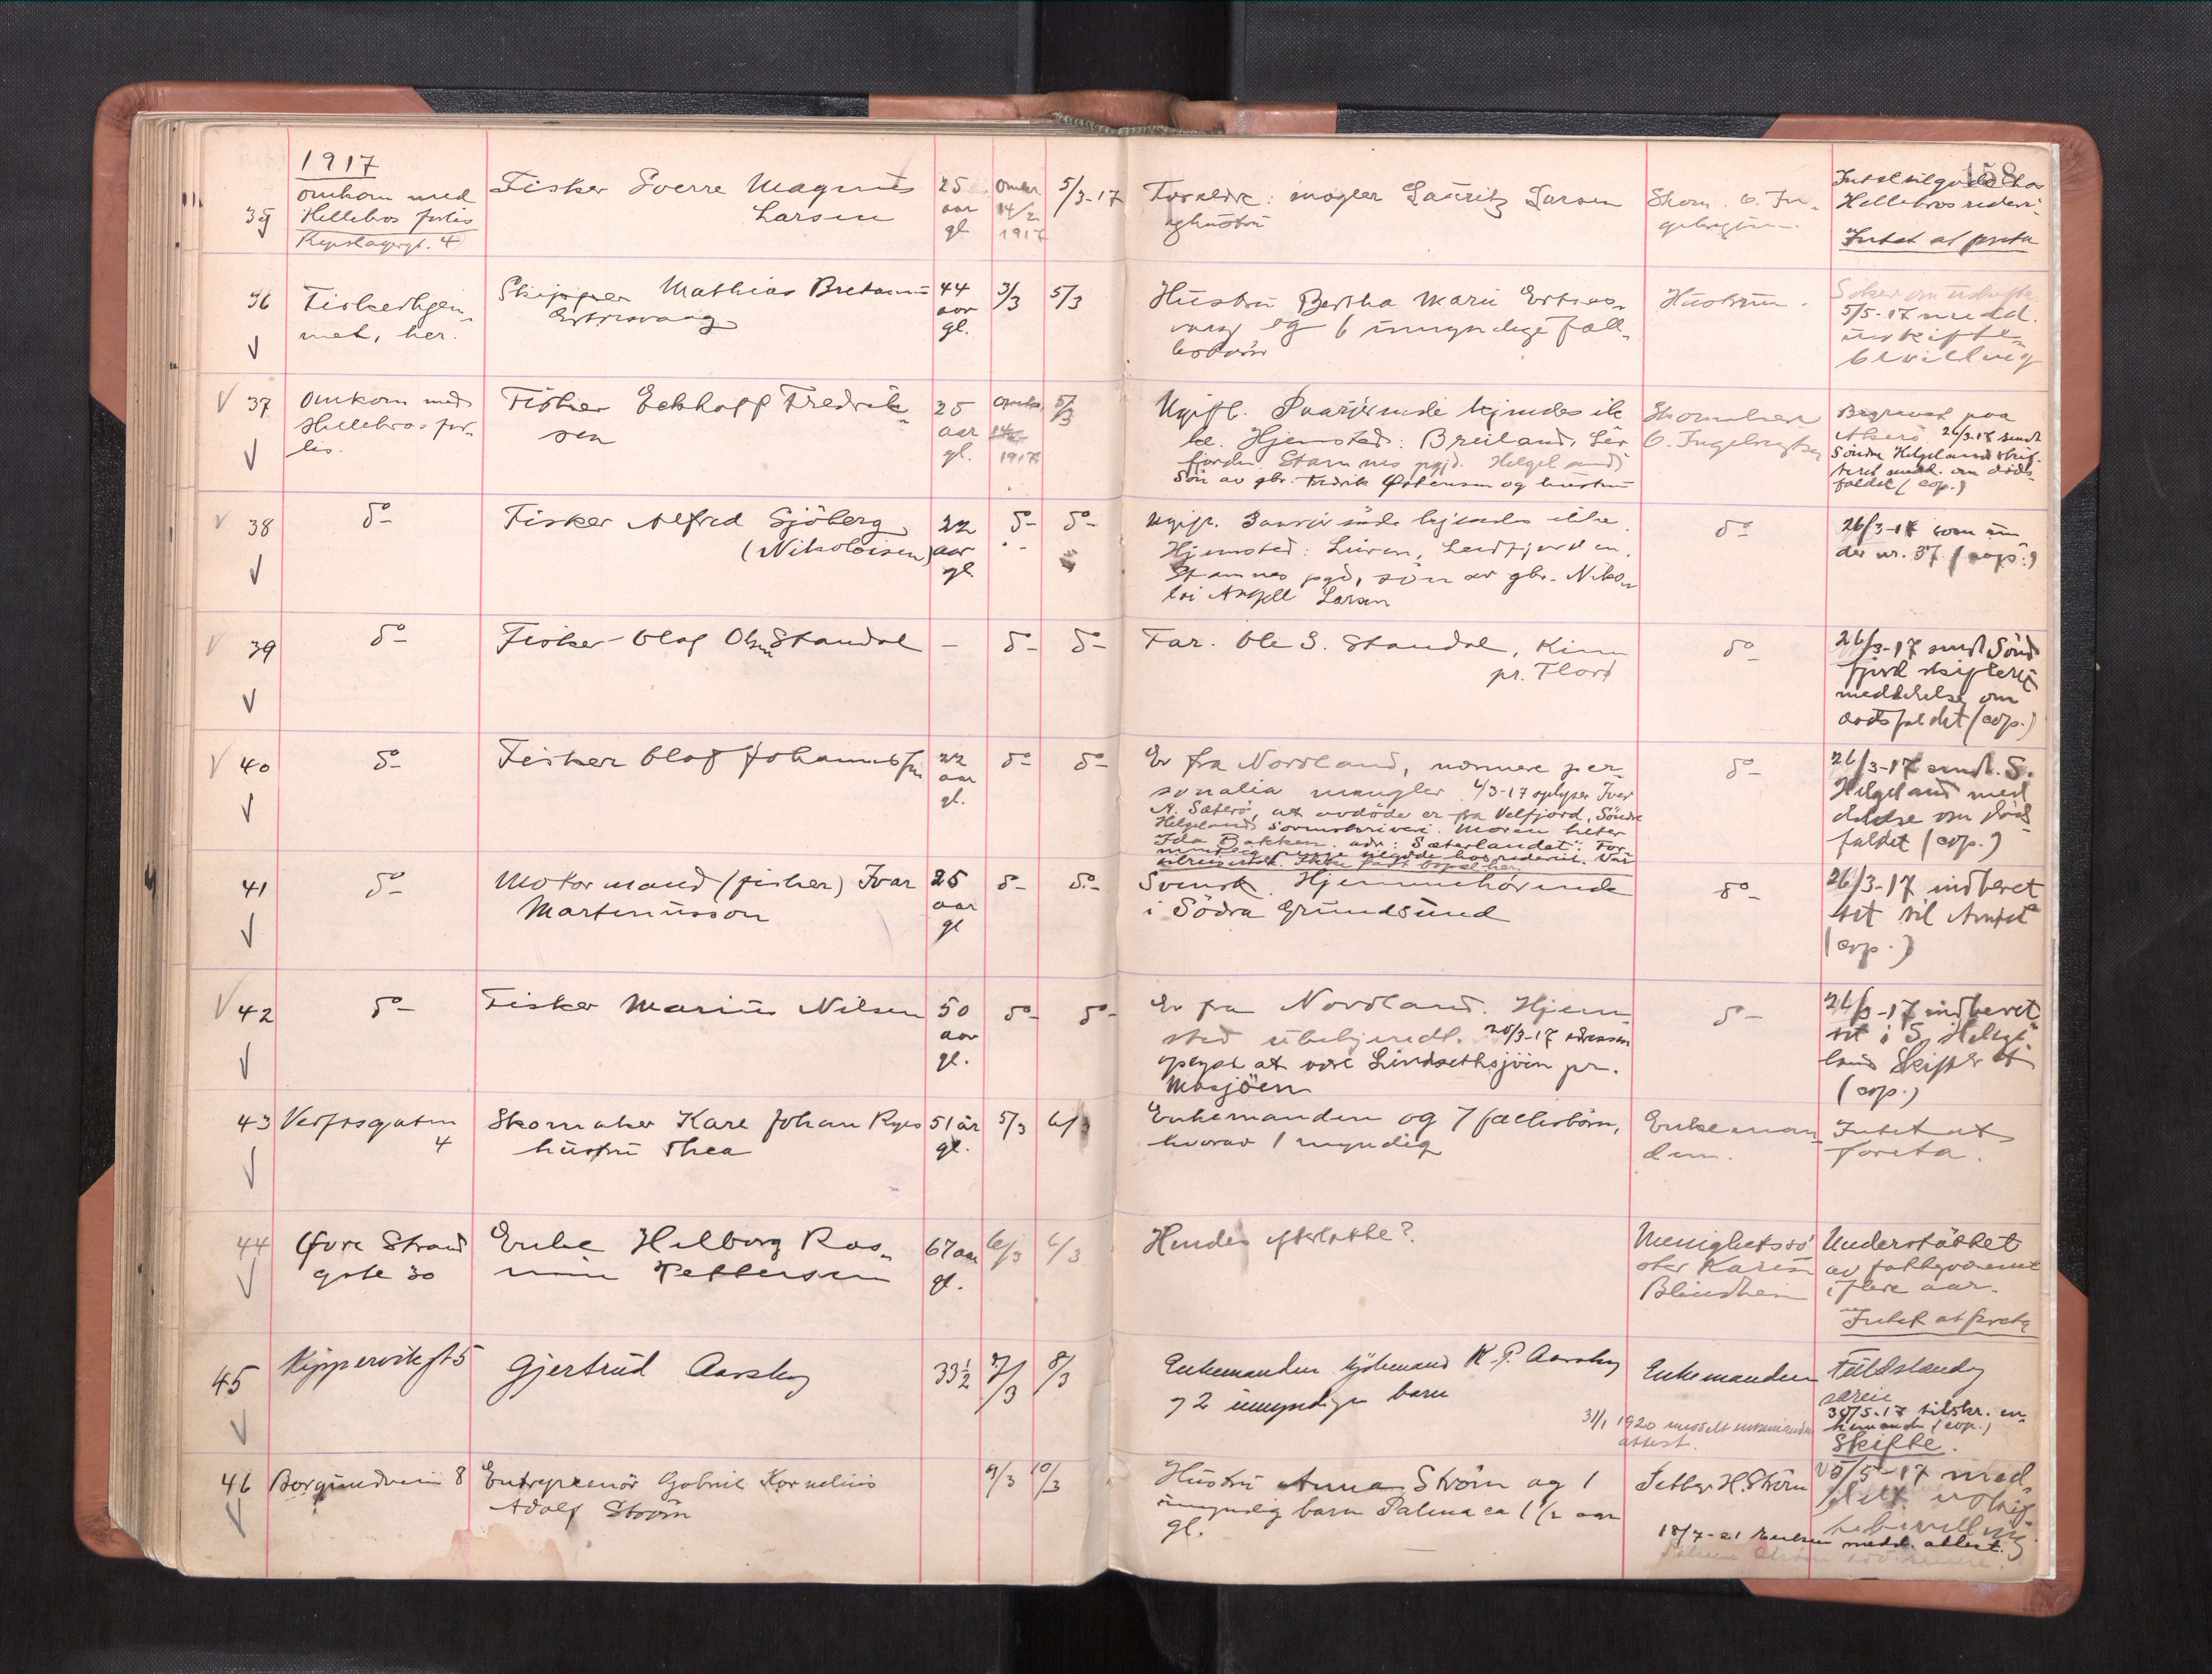 1917
158
35
omkom med
Hellebros forlis
Repslagergt. 4
Fisker Sverre Magnus
Larsen
25
aar
gl.
omkr.
14/2
1917
5/3-17
Forældre: mægler Lauritz Larsen
og hustru
Skom. O. In-
gebrigtsen
Intet tilgode hos
Hellebros rederi.
Intet at foreta
36
Fiskerhjem-
met, her.
Skipper Mathias Bretanus
44
aar
gl.
3/3
5/3
Hustru Bertha Marie Ertnes-
vaag og 6 umyndige fæll-
esbørn
Hustruen.
Søker om uskifte
5/5-17 medd.
uskifte-
bevilling
37
Omkom med
Hellebros for-
lis.
Fisker Eckhoff Fredrik-
sen
25
aar
gl.
omkr.
14/2
1917
5/3
Ugift. Paarørende kjendes ik
ke. Hjemsted: Breiland, Leir
fjorden. Stamnes pgjd. Helgeland
Søn av gbr. Fredrik Østensen og hustru
Skomaker
O. Ingebrigtsen
Begravet paa
26/3-17 sendt
Søndre Helgeland skif-
teret medd. om døds-
faldet (cop.)
38
do-
Fisker Alfred Sjöberg
(Nikolaisen)
22
aar
gl
do-
do-
Ugift. Paarørende kjendes ikke.
Hjemsted: Leiren, Leirfjorden,
Stamnes pgd, søn av gbr. Niko-
lai Angell Larsen
do
26/3-17 som un
der nr. 37 (cop.)
39
do-
Fisker Olaf Olsen Standal
-
do-
do-
Far. Ole S. Standal, Kinn
pr. Florø
do-
26/3-17 sendt Sönd
fjord skifteret
meddelelse om
dødsfaldet (cop.)
40
do-
Fisker Olaf Johannessen
22
aar
gl.
do-
do-
Er fra Nordland, nærmere per-
sonalia mangler. 4/3-17 oplyser Ivar
N. Sæterø, at avdöde er fra Velfjord, Söndre
Helgeland Sorenskriveri. Moren heter
Ida Bakken. adr: Sæterlandet. For-
mentlig penge tilgode hos rederiet. Var
tilreisende. Ikke fast bopæl her.
do-
26/3-17 sendt S.
Helgeland med
delelse om döds
faldet (cop.)
41
do-
Motormand (fisker) Ivar
Martinusson
25
aar
gl
do-
do-
Svensk. Hjemmehörende
i Södra Grundsund
do-
26/3-17 indberet
tet til Amtet
(cop.)
42
do-
Fisker Marius Nilsen
50
aar
gl.
do-
do-
Er fra Nordland. Hjem-
sted ubekjendt. 20/3-17 adressen
oplyst at være Lindsethsjöen pr.
Mosjöen
do-
26/3-17 indberet
tet i S. Helge-
land Skifteret
(cop.)
43
Verftsgaten
4
Skomaker Kare Johan Ryes
hustru Thea
51 år
gl.
5/3
6/3
Enkemanden og 7 fællesbörn,
hvorav 1 myndig
Enkeman-
den.
Intet at
foreta.
44
Øvre Strand
gate 30
Enke Helborg Ras-
mine Pettersen
67 aar
gl.
6/3
6/3
Hendes efterlatte?
Menighetssö
ster Karen
Blindheim
Understøttet
av fattigvæsenet
i flere aar.
Intet at foreta
45
Kippervikgt 5
Gjertrud Aarskog
33 1/2
7/3
8/3
Enkemanden sjömand K. P. Aarskog
og 2 umyndige barn
31/1 1920 meddelt enkemanden
attest.
Enkemanden
Fuldstændig
særeie
30/5-17 tilskr. en-
kemanden (cop.)
Skifte.
46
Borgundveien 8
Entreprenör Gabriel Kornelius
Adolf Ström
9/3
10/3
Hustru Anna Ström og 1
umyndig barn Palma ca 1 1/2 aar
gl.
H. Ström
5/5-17 med-
delt uskif-
tebevilling
18/7-21 Enken medd. attest.